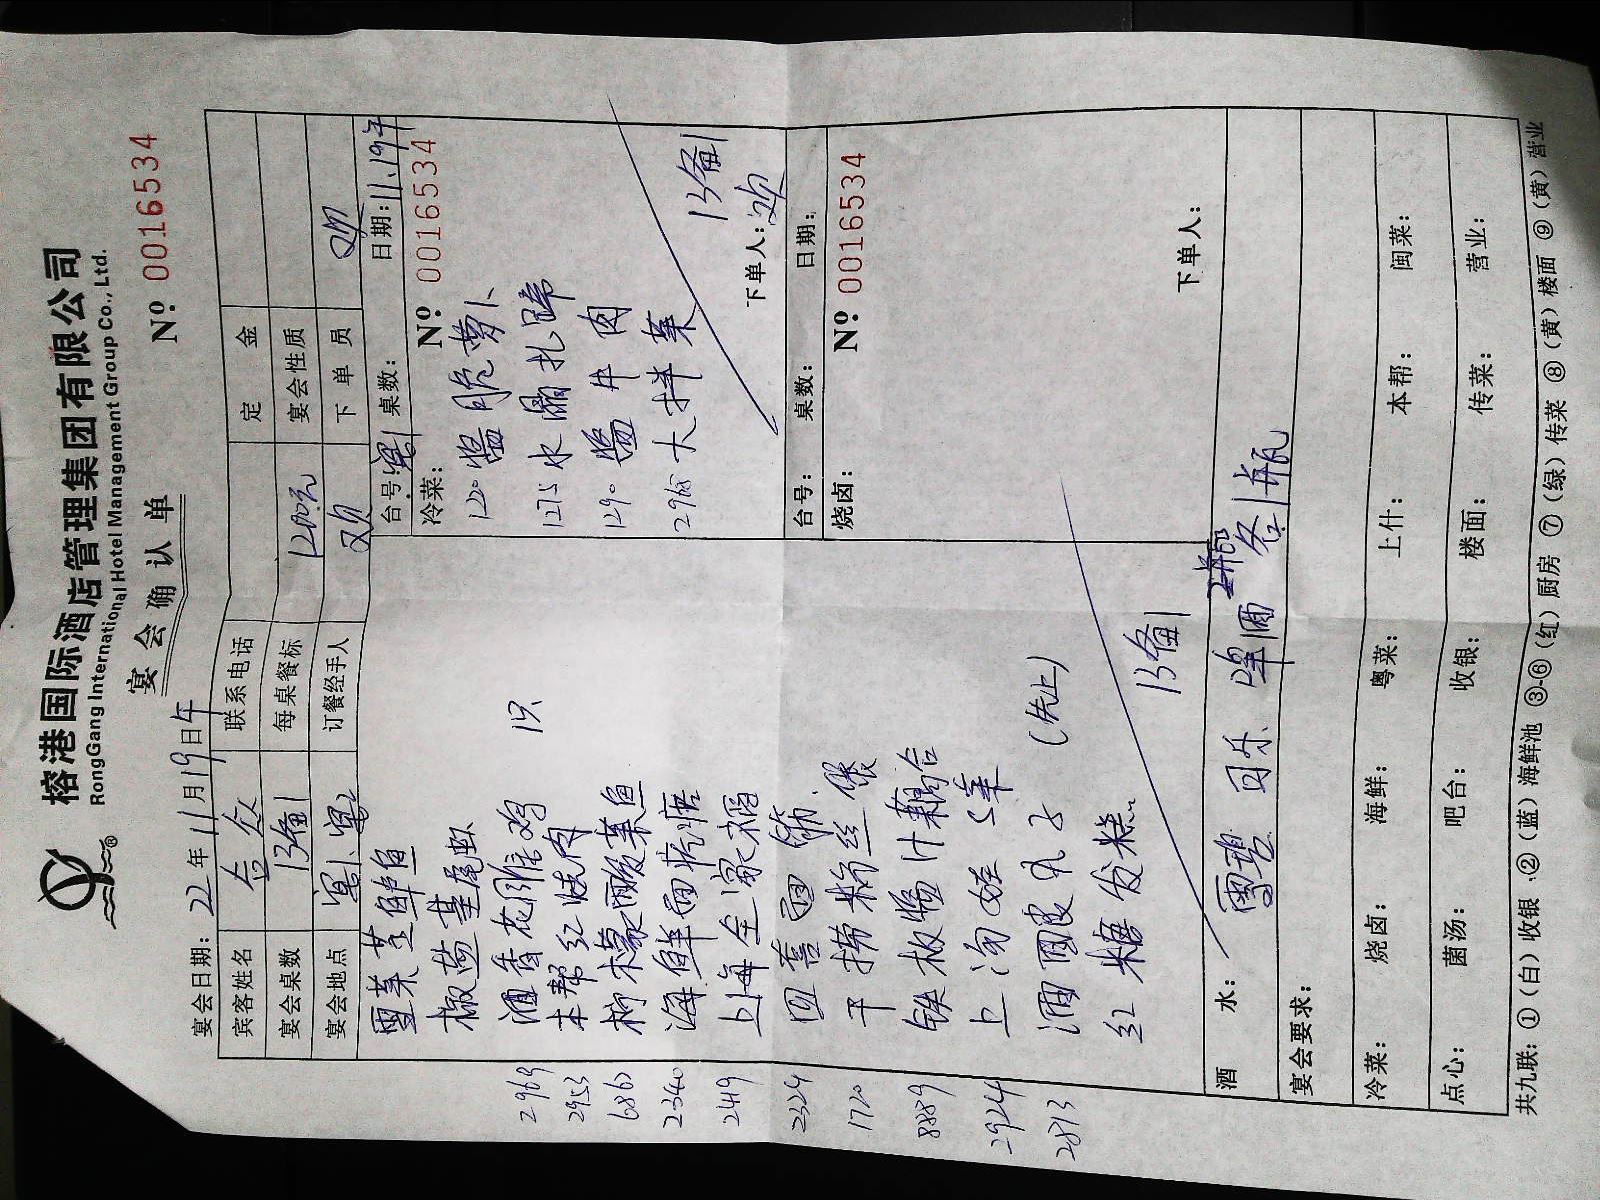 榕港国际酒店管理集团有限公司
RongGang International Hotel Management Group Co., Ltd.
宴会确认单
Nº: 0016534
宴会日期: 22年11月19日午
宾客姓名 联系电话 定金
宴会桌数 13备1 每桌餐标 1200元 宴会性质
宴会地点 订餐经手人 下单员
雪菜 鱼
椒盐基尾虾
2969 酒香花雕鸡 1只
2953 本帮红烧肉
6860 柠檬酸菜鱼
2340 海鲜面疙瘩
2419 上海全家福
2324 四喜面筋
1720 干捞粉丝煲
8889 铁板酱汁藕合
2924 上汤娃娃菜
2813 酒酿丸子 (先上)
红糖发糕
13备1
台号: 桌数: 日期: 11.19午
冷菜: Nº: 0016534
120 酱脆萝卜
1275 水晶扎蹄
1290 酱牛肉
2968 大拌菜
13备1
下单人:
台号: 桌数: 日期:
烧卤: Nº 0016534
下单人:
酒水: 雪碧 可乐 啤酒 各1瓶
宴会要求:
冷菜: 烧卤: 海鲜: 粤菜: 上什: 本帮: 闽菜:
点心: 菌汤: 吧台: 收银: 楼面: 传菜: 营业:
共九联: ①(白)收银 ②(蓝)海鲜池 ③-⑥(红)厨房 ⑦(绿)传菜 ⑧(黄)楼面 ⑨(黄)营业